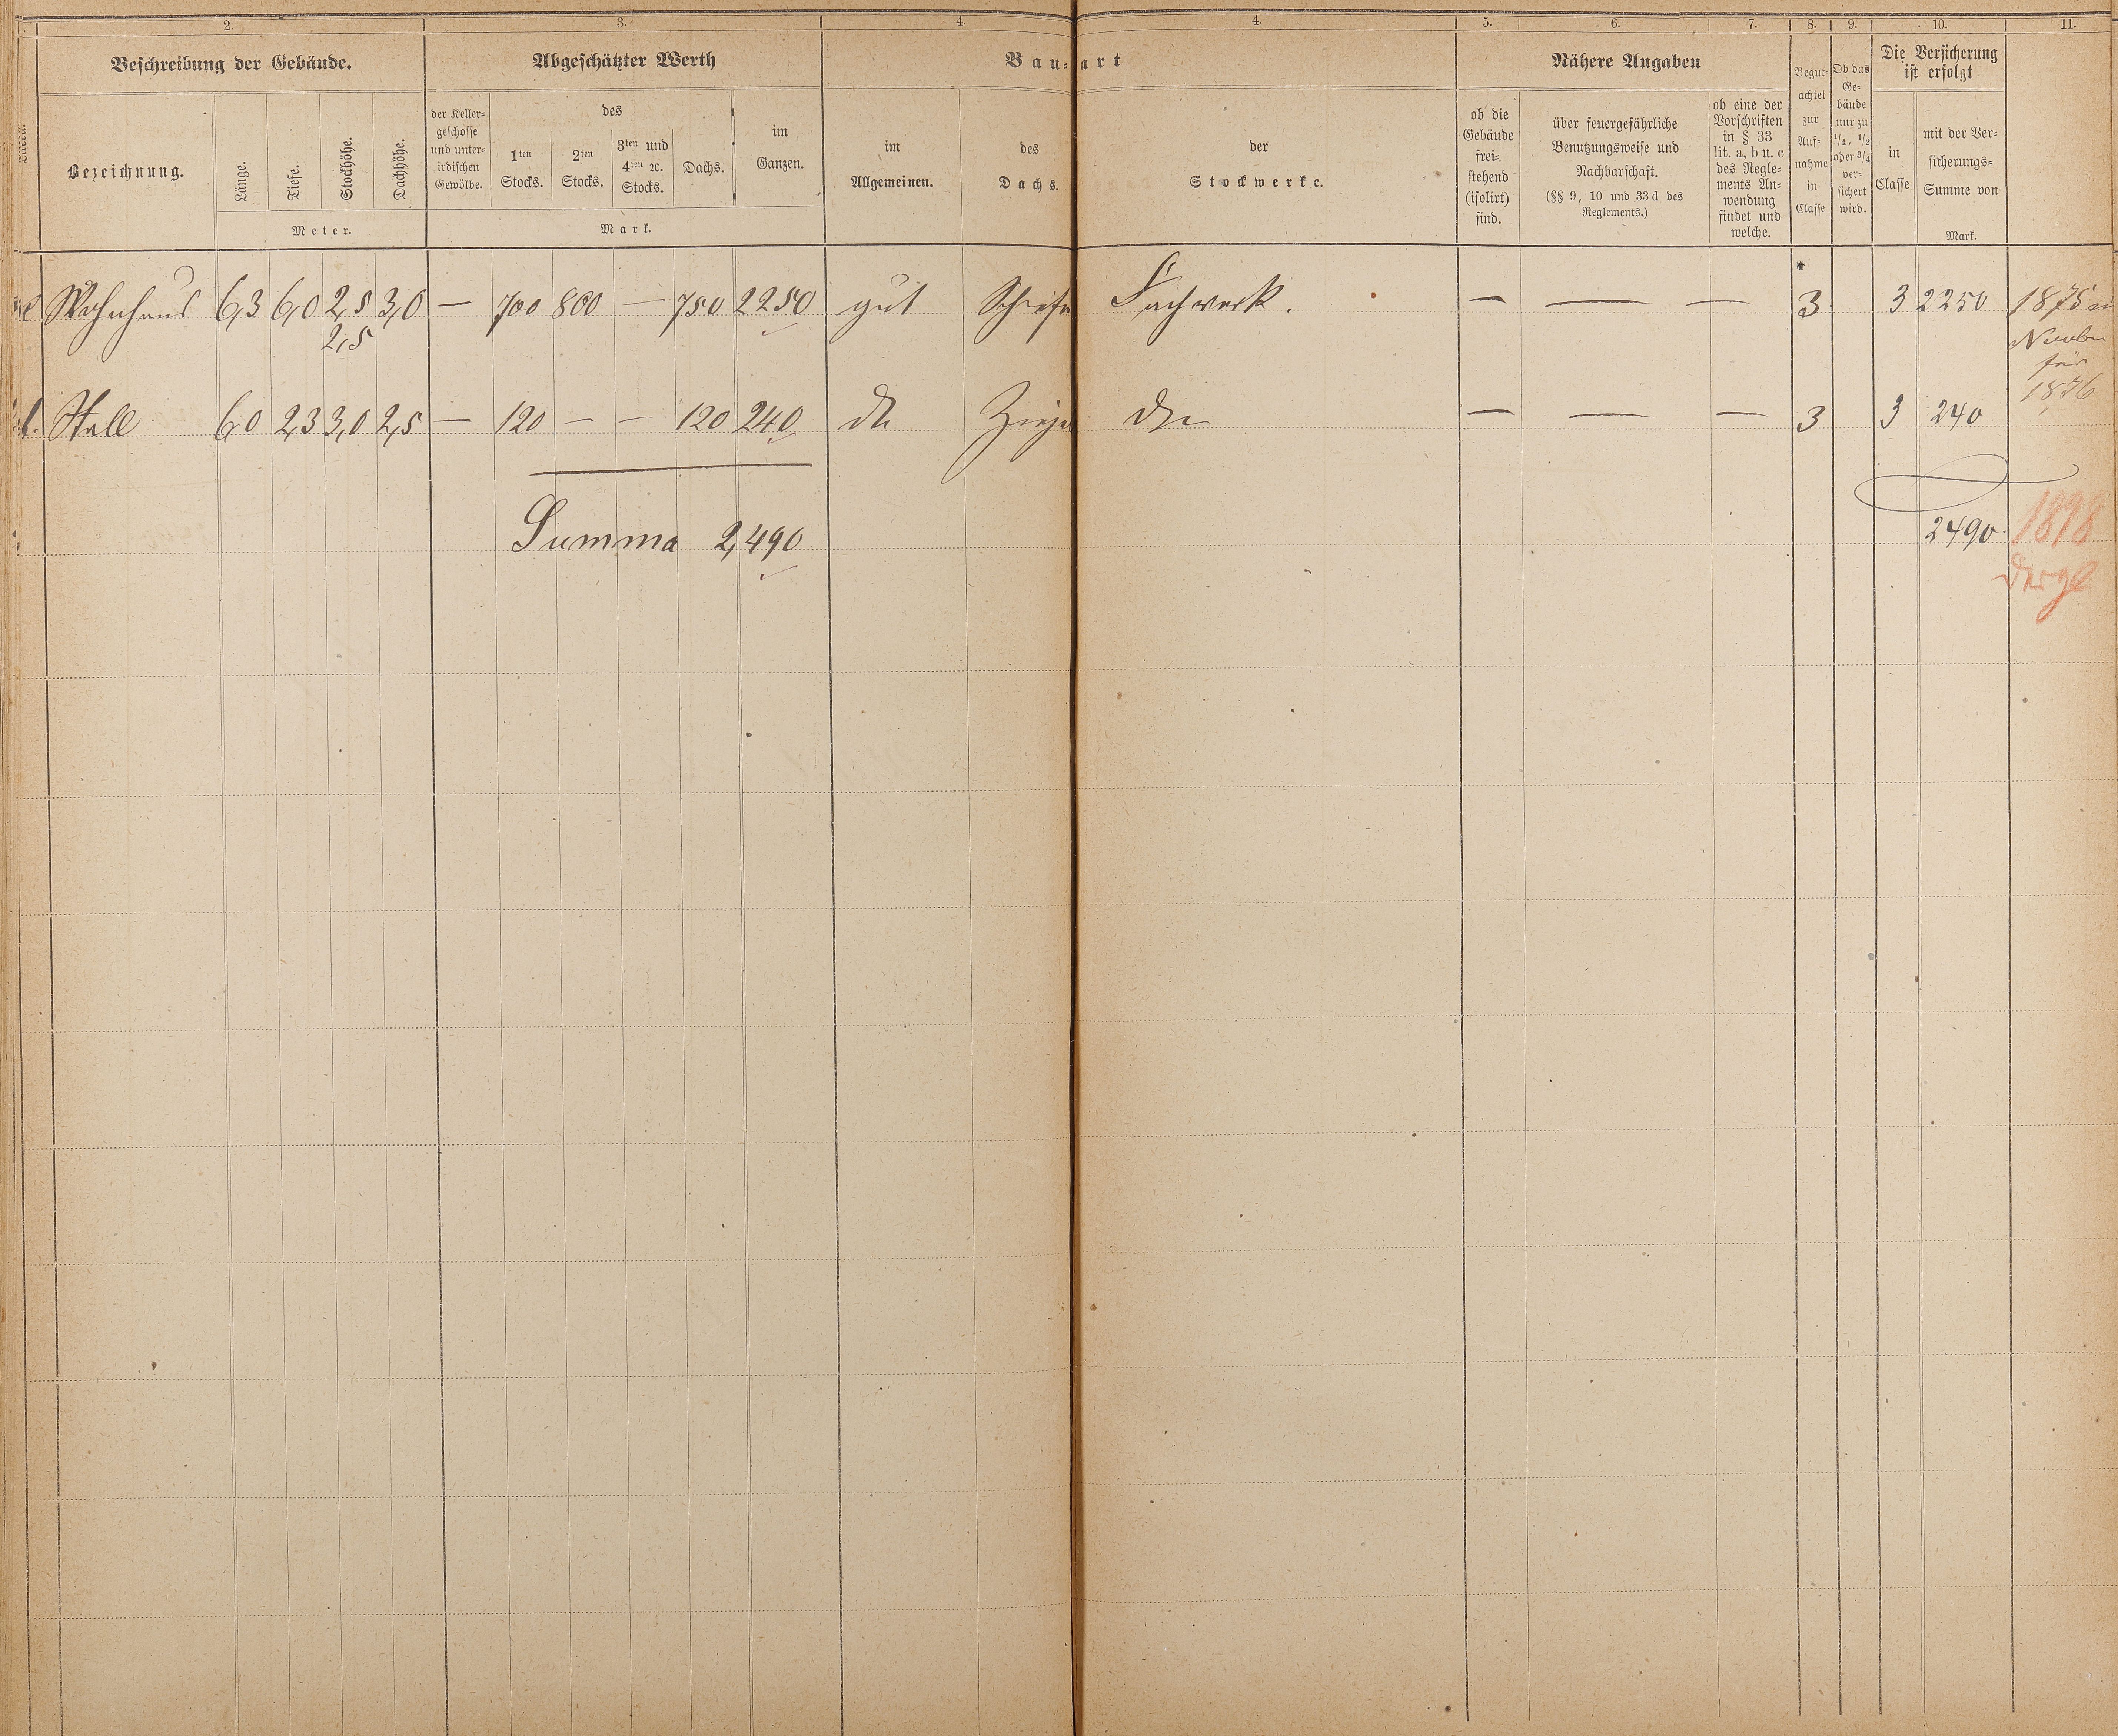 2. 3. 4. 4. 5. 6. 7. 8. 9. 10. 11.
Beschreibung der Gebäude. Abgeschätzter Werth Bau-art Nähere Angaben
Begut-
achtet
zur
Auf-
nahme
in
Classe
Ob das
Ge-
bäude
nur zu
1/4, 1/2
oder 3/4
ver-
sichert
wird.
Die Versicherung
ist erfolgt
Bezeichnung.
Länge.
Tiefe.
Stockhöhe.
Dachhöhe.
Meter.
der Keller-
geschosse
und unter-
irdischen
Gewölbe.
des
1ten
Stocks.
2ten
Stocks.
3ten und
4ten ꝛc.
Stocks.
Dachs.
im
Ganzen.
Mark.
im
Allgemeinen.
des
Dachs.
der
Stockwerke.
ob die
Gebäude
frei-
stehend
(isolirt)
sind.
über feuergefährliche
Benutzungsweise und
Nachbarschaft.
(§§ 9, 10 und 33 d des
Reglements.)
ob eine der
Vorschriften
in § 33
lit. a, b u. c
des Regle-
ments An-
wendung
findet und
welche.
in
Classe
mit der Ver-
sicherungs-
Summe von
Mark.
Wohnhaus 6,3 6,0 2,5 3,0 — 700 800 — 750 2250 gut Schiefe Fachwerk. — — — 3 3 2250 1875
2,5
für
1876
Stall 6,0 2,3 3,0 2,5 — 120 — — 120 240 dto Ziegel dto — — — 3 3 240
Summa 2,490 2490 1898